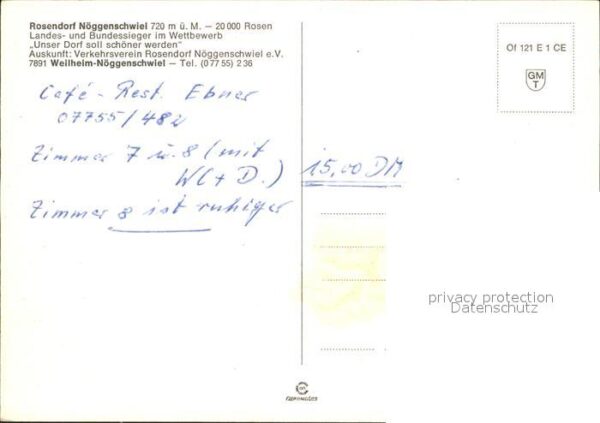 Rosendorf Nöggenschwiel 720 m ü. M. — 20 000 Rosen
Landes- und Bundessieger im Wettbewerb
„Unser Dorf soll schöner werden"
Auskunft: Verkehrsverein Rosendorf Nöggenschwiel e.V.
7891 Weilheim-Nöggenschwiel — Tel. (0 77 55) 2 36
Of 121 E 1 CE
GM
T
Café - Rest. Ebner
07755/482
Zimmer 7 u. 8 (mit
WC + D.) 15,00 DM
Zimmer 8 ist ruhiger
privacy protection
Datenschutz